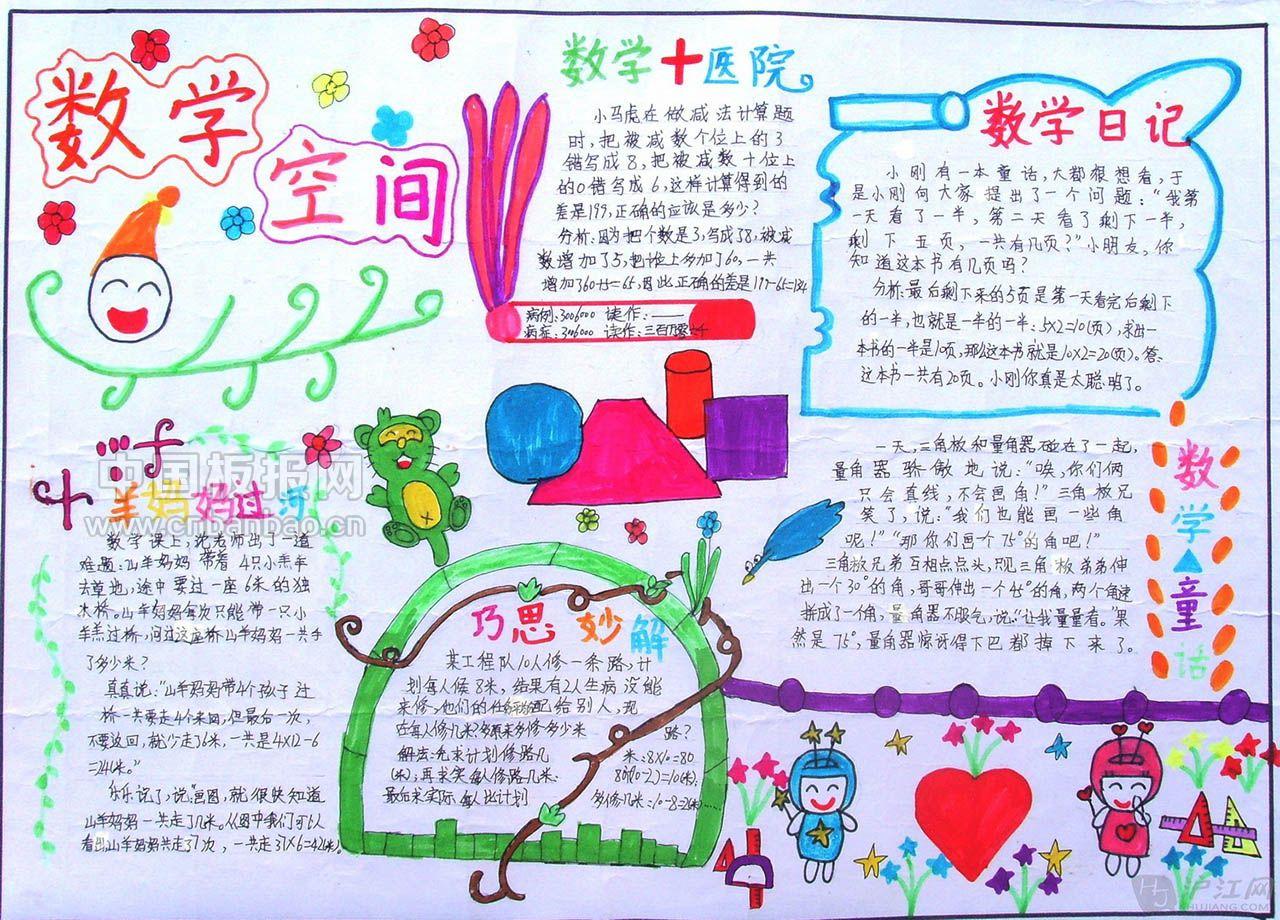 数学
空间
数学十医院
小马虎在做减法计算题
时,把被减数个位上的3
错写成8,把被减数十位上
的0错写成6,这样计算得到的
差是199,正确的应该是多少?
分析:因为把个数是3,写成了8,被减
数增加了5,把十位上多加了60,一共
增加了60+5=65,因此正确的差是199-65=134
病例:3006000 读作:
病症:3006000 读作:三百万零六千
数学日记
小刚有一本童话,大都很想看,于
是小刚向大家提出了一个问题:“我第
一天看了一半,第二天看了剩下一半,
剩下五页,一共有几页?”小朋友,你
知道这本书有几页吗?
分析:最后剩下来的5页是第一天看完后剩下
的一半,也就是一半的一半:5×2=10(页),求出一
本书的一半是10页,那么这本书就是10×2=20(页)。答:
这本书一共有20页。小刚你真是太聪明了。
羊妈妈过河
数学课上,老师出了一道
难题:山羊妈妈带着4只小羔羊
去草地,途中要过一座6米的独
木桥。山羊妈妈每次只能带一只小
羊羔过桥,问过这座桥山羊妈妈一共走
了多少米?
真真说:“山羊妈妈带4个孩子过
桥一共要走4个来回,但最后一次,
不要这回,就少走了6米,一共是4×12-6
=24(米)。”
乐乐说了,说:“画图,就很快知道
山羊妈妈一共走了几米。从图中我们可以
看出山羊妈妈共走了7次,一共走了7×6=42(米)。
巧思妙解
某工程队10人修一条路,计
划每人修8米,结果有2人生病没能
来修,他们的任务分配给别人,现
在每人修几米?多原来多修多少米
路?
解法:先求计划修路几
米:8×10=80
(米),再求实每人修路几米:
80÷(10-2)=10(米),
最后求实际每人比计划
多修几米:10-8=2(米)……
一天,三角板和量角器碰在了一起,
量角器骄傲地说:“唉,你们俩
只会直线,不会画角!”三角板兄
笑了,说:“我们也能画一些角
呢!”“那你们画个75°的角吧!”
三角板兄弟互相点点头,只见三角板弟弟伸
出一个30°的角,哥哥伸出一个45°的角,两个角速
拼成了一个角,量角器不服气,说:“让我量量看。”果
然是75°,量角器惊讶得下巴都掉下来了。
数学童话
中国板报网
www.cnbanbao.cn
沪江网
HUJIANG.COM